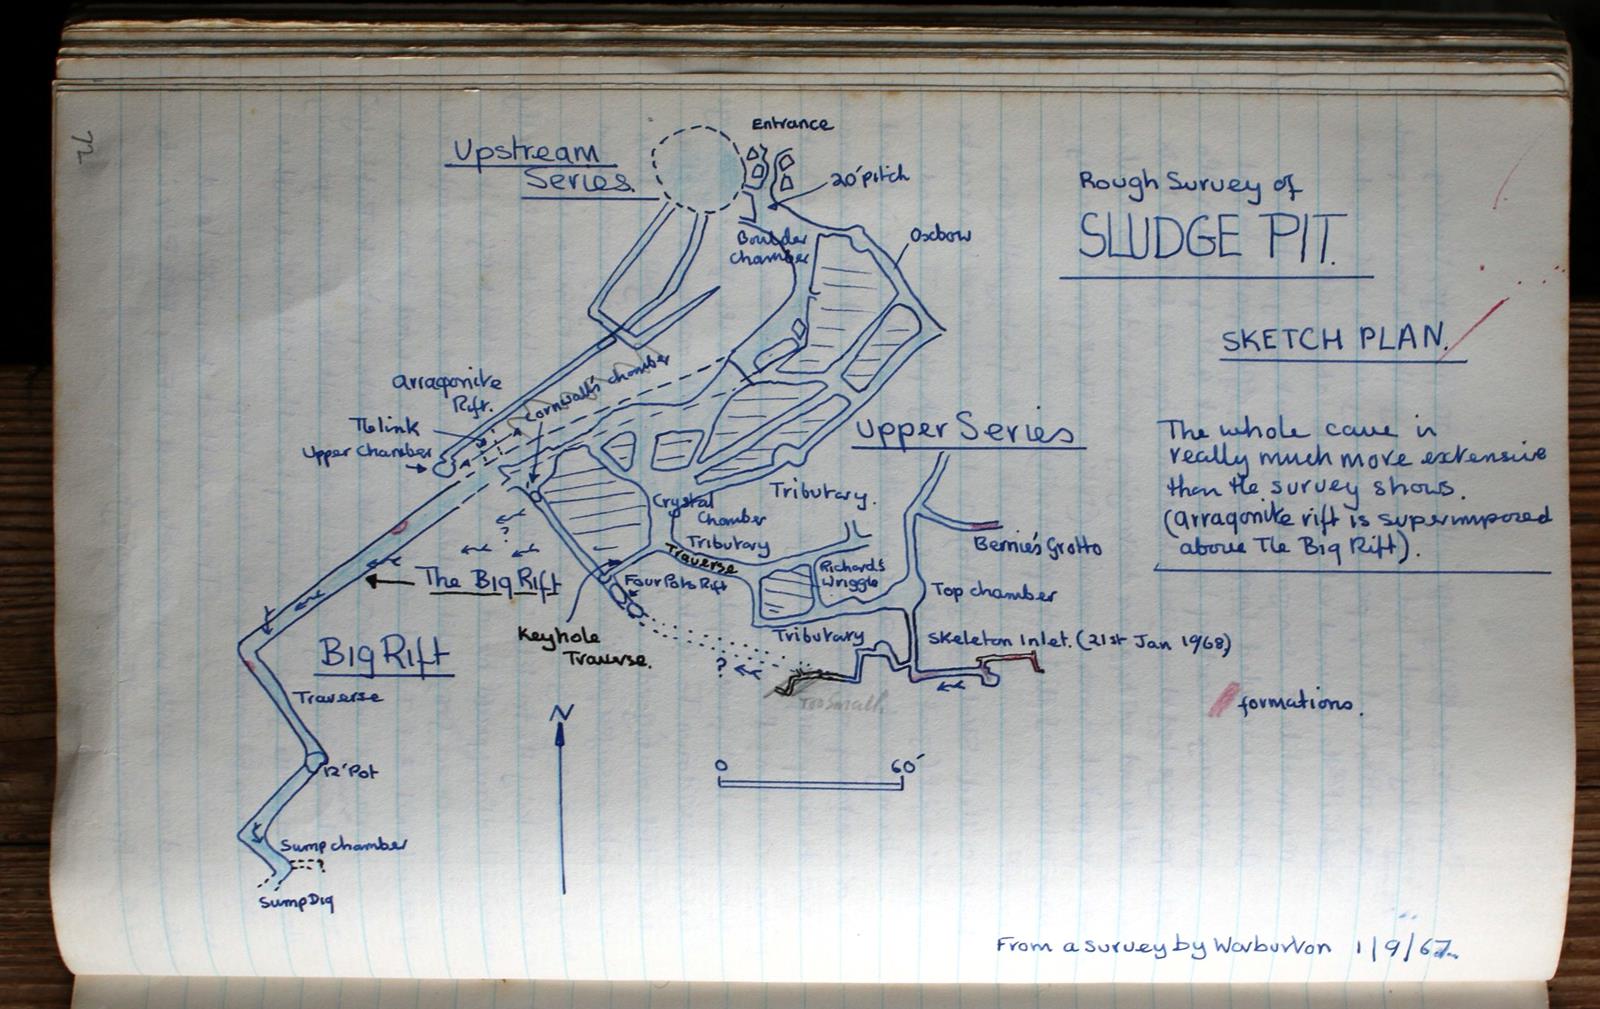 72
Entrance
Upstream
Series.
20' pitch
Rough Survey of
SLUDGE PIT.
Boulder
chamber
Oxbow
SKETCH PLAN.
Cornwall's chamber
arragonite
Rift.
The link
Upper Chamber
Upper Series
The whole cave is
really much more extensive
than the survey shows.
(arragonite rift is superimposed
above The Big Rift).
Crystal
Chamber
Tributary.
Tributary
Traverse
Bernie's Grotto
?
The Big Rift
Four Pots Rift
Richard's
Wriggle
Top chamber
Keyhole
Traverse.
Tributary
Skeleton Inlet. (21st Jan 1968)
Big Rift
?
Too Small.
Traverse
formations.
N
12' Pot
0 60'
Sump chamber
?
Sump Dig
From a survey by Warburton 1/9/67.